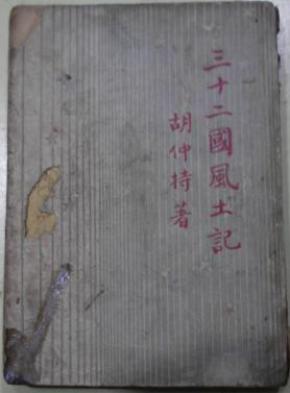 三十二國風土記
胡仲持著